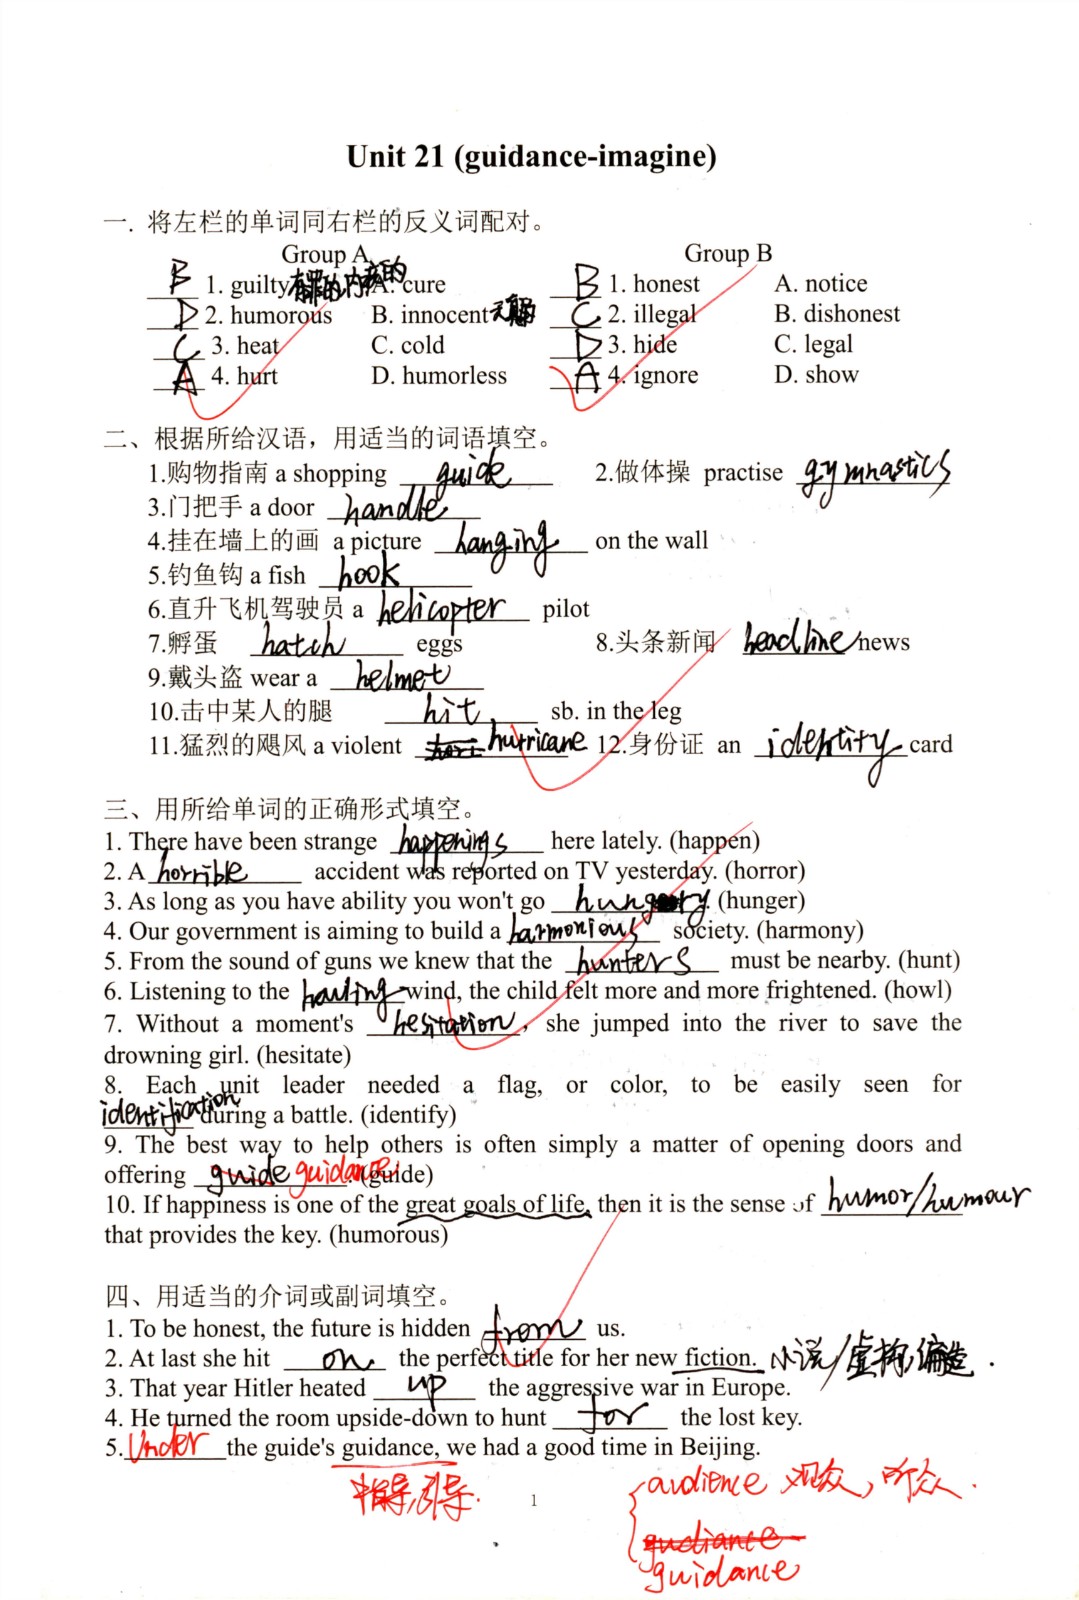 Unit 21 (guidance-imagine)
一. 将左栏的单词同右栏的反义词配对。
Group A Group B
B 1. guilty 有罪的内疚的 A. cure B 1. honest A. notice
D 2. humorous B. innocent 无罪的 C 2. illegal B. dishonest
C 3. heat C. cold D 3. hide C. legal
A 4. hurt D. humorless A 4. ignore D. show
二、根据所给汉语，用适当的词语填空。
1.购物指南 a shopping guide 2.做体操 practise gymnastics
3.门把手 a door handle
4.挂在墙上的画 a picture hanging on the wall
5.钓鱼钩 a fish hook
6.直升飞机驾驶员 a helicopter pilot
7.孵蛋 hatch eggs 8.头条新闻 headline news
9.戴头盔 wear a helmet
10.击中某人的腿 hit sb. in the leg
11.猛烈的飓风 a violent hurricane 12.身份证 an identity card
三、用所给单词的正确形式填空。
1. There have been strange happenings here lately. (happen)
2. A horrible accident was reported on TV yesterday. (horror)
3. As long as you have ability you won't go hungry. (hunger)
4. Our government is aiming to build a harmonious society. (harmony)
5. From the sound of guns we knew that the hunters must be nearby. (hunt)
6. Listening to the hauling wind, the child felt more and more frightened. (howl)
7. Without a moment's hesitation, she jumped into the river to save the
drowning girl. (hesitate)
8. Each unit leader needed a flag, or color, to be easily seen for
identification during a battle. (identify)
9. The best way to help others is often simply a matter of opening doors and
offering guide guidance. (guide)
10. If happiness is one of the great goals of life, then it is the sense of humor/humour
that provides the key. (humorous)
四、用适当的介词或副词填空。
1. To be honest, the future is hidden from us.
2. At last she hit on the perfect title for her new fiction. 小说/虚构,编造.
3. That year Hitler heated up the aggressive war in Europe.
4. He turned the room upside-down to hunt for the lost key.
5. Under the guide's guidance, we had a good time in Beijing.
指导,引导.
1
audience 观众,听众.
gudiance
guidance